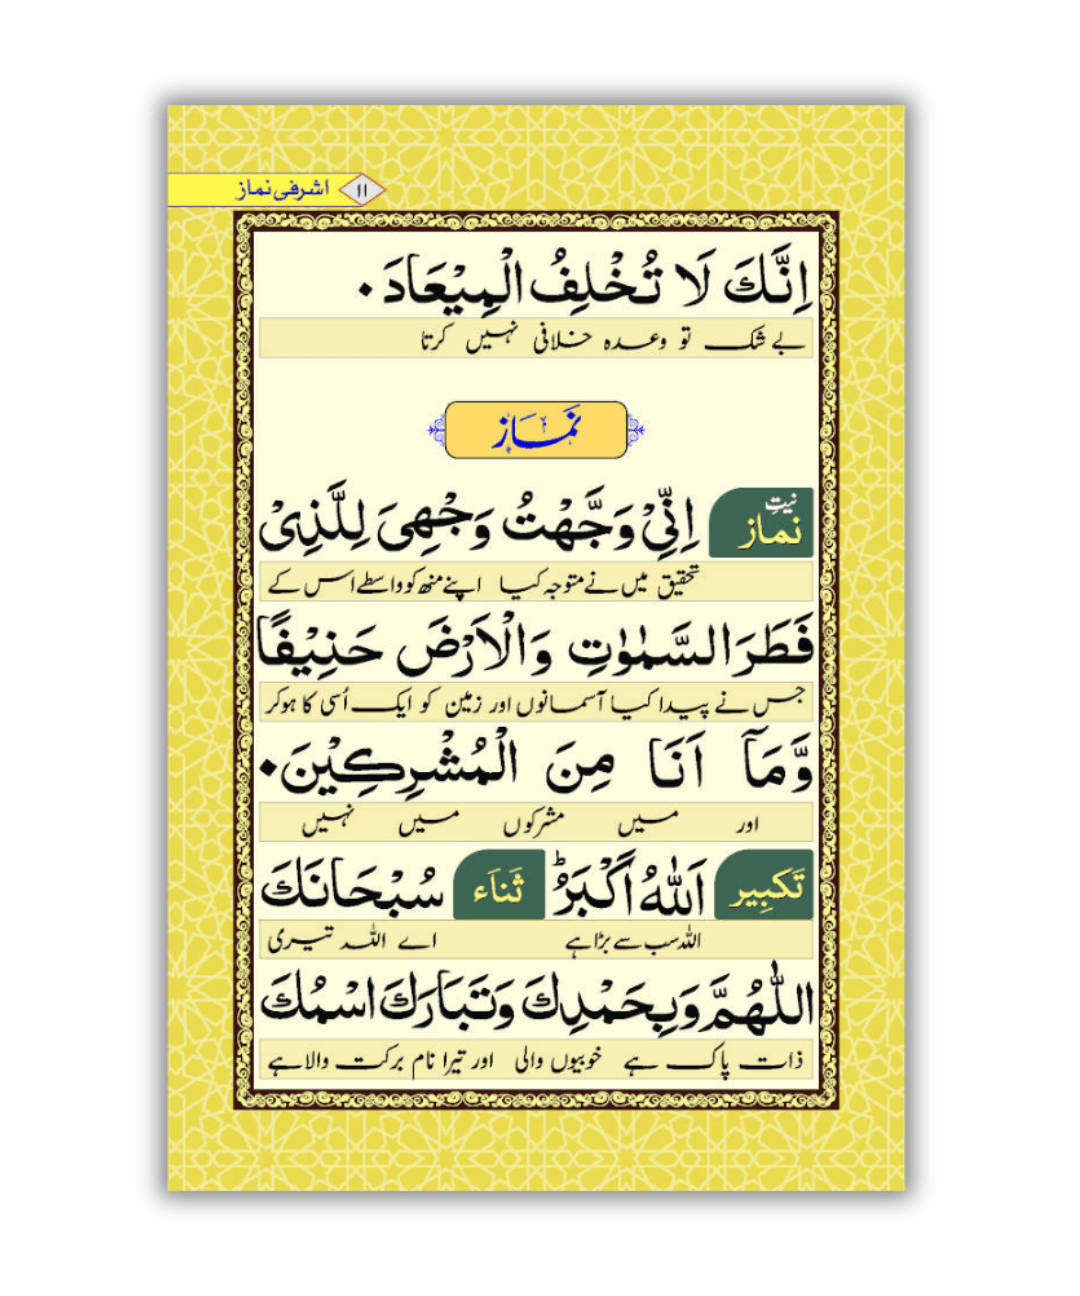 ۱۱ اشرفی نماز
اِنَّكَ لَا تُخْلِفُ الْمِيْعَادَ۰
بے شک تو وعدہ خلافی نہیں کرتا
نَمَاز
نیتِ نماز اِنِّیْ وَجَّهْتُ وَجْهِیَ لِلَّذِیْ
تحقیق میں نے متوجہ کیا اپنے منھ کو واسطے اس کے
فَطَرَ السَّمٰوٰتِ وَالْاَرْضَ حَنِيْفًا
جس نے پیدا کیا آسمانوں اور زمین کو ایک اُسی کا ہوکر
وَّمَآ اَنَا مِنَ الْمُشْرِكِيْنَ۰
اور میں مشرکوں میں نہیں
تَكبِير اَللّٰهُ اَكْبَرُؕ ثَنَاَء سُبْحَانَكَ
اللہ سب سے بڑا ہے اے اللہ تیری
اللّٰهُمَّ وَبِحَمْدِكَ وَتَبَارَكَ اسْمُكَ
ذات پاک ہے خوبیوں والی اور تیرا نام برکت والا ہے